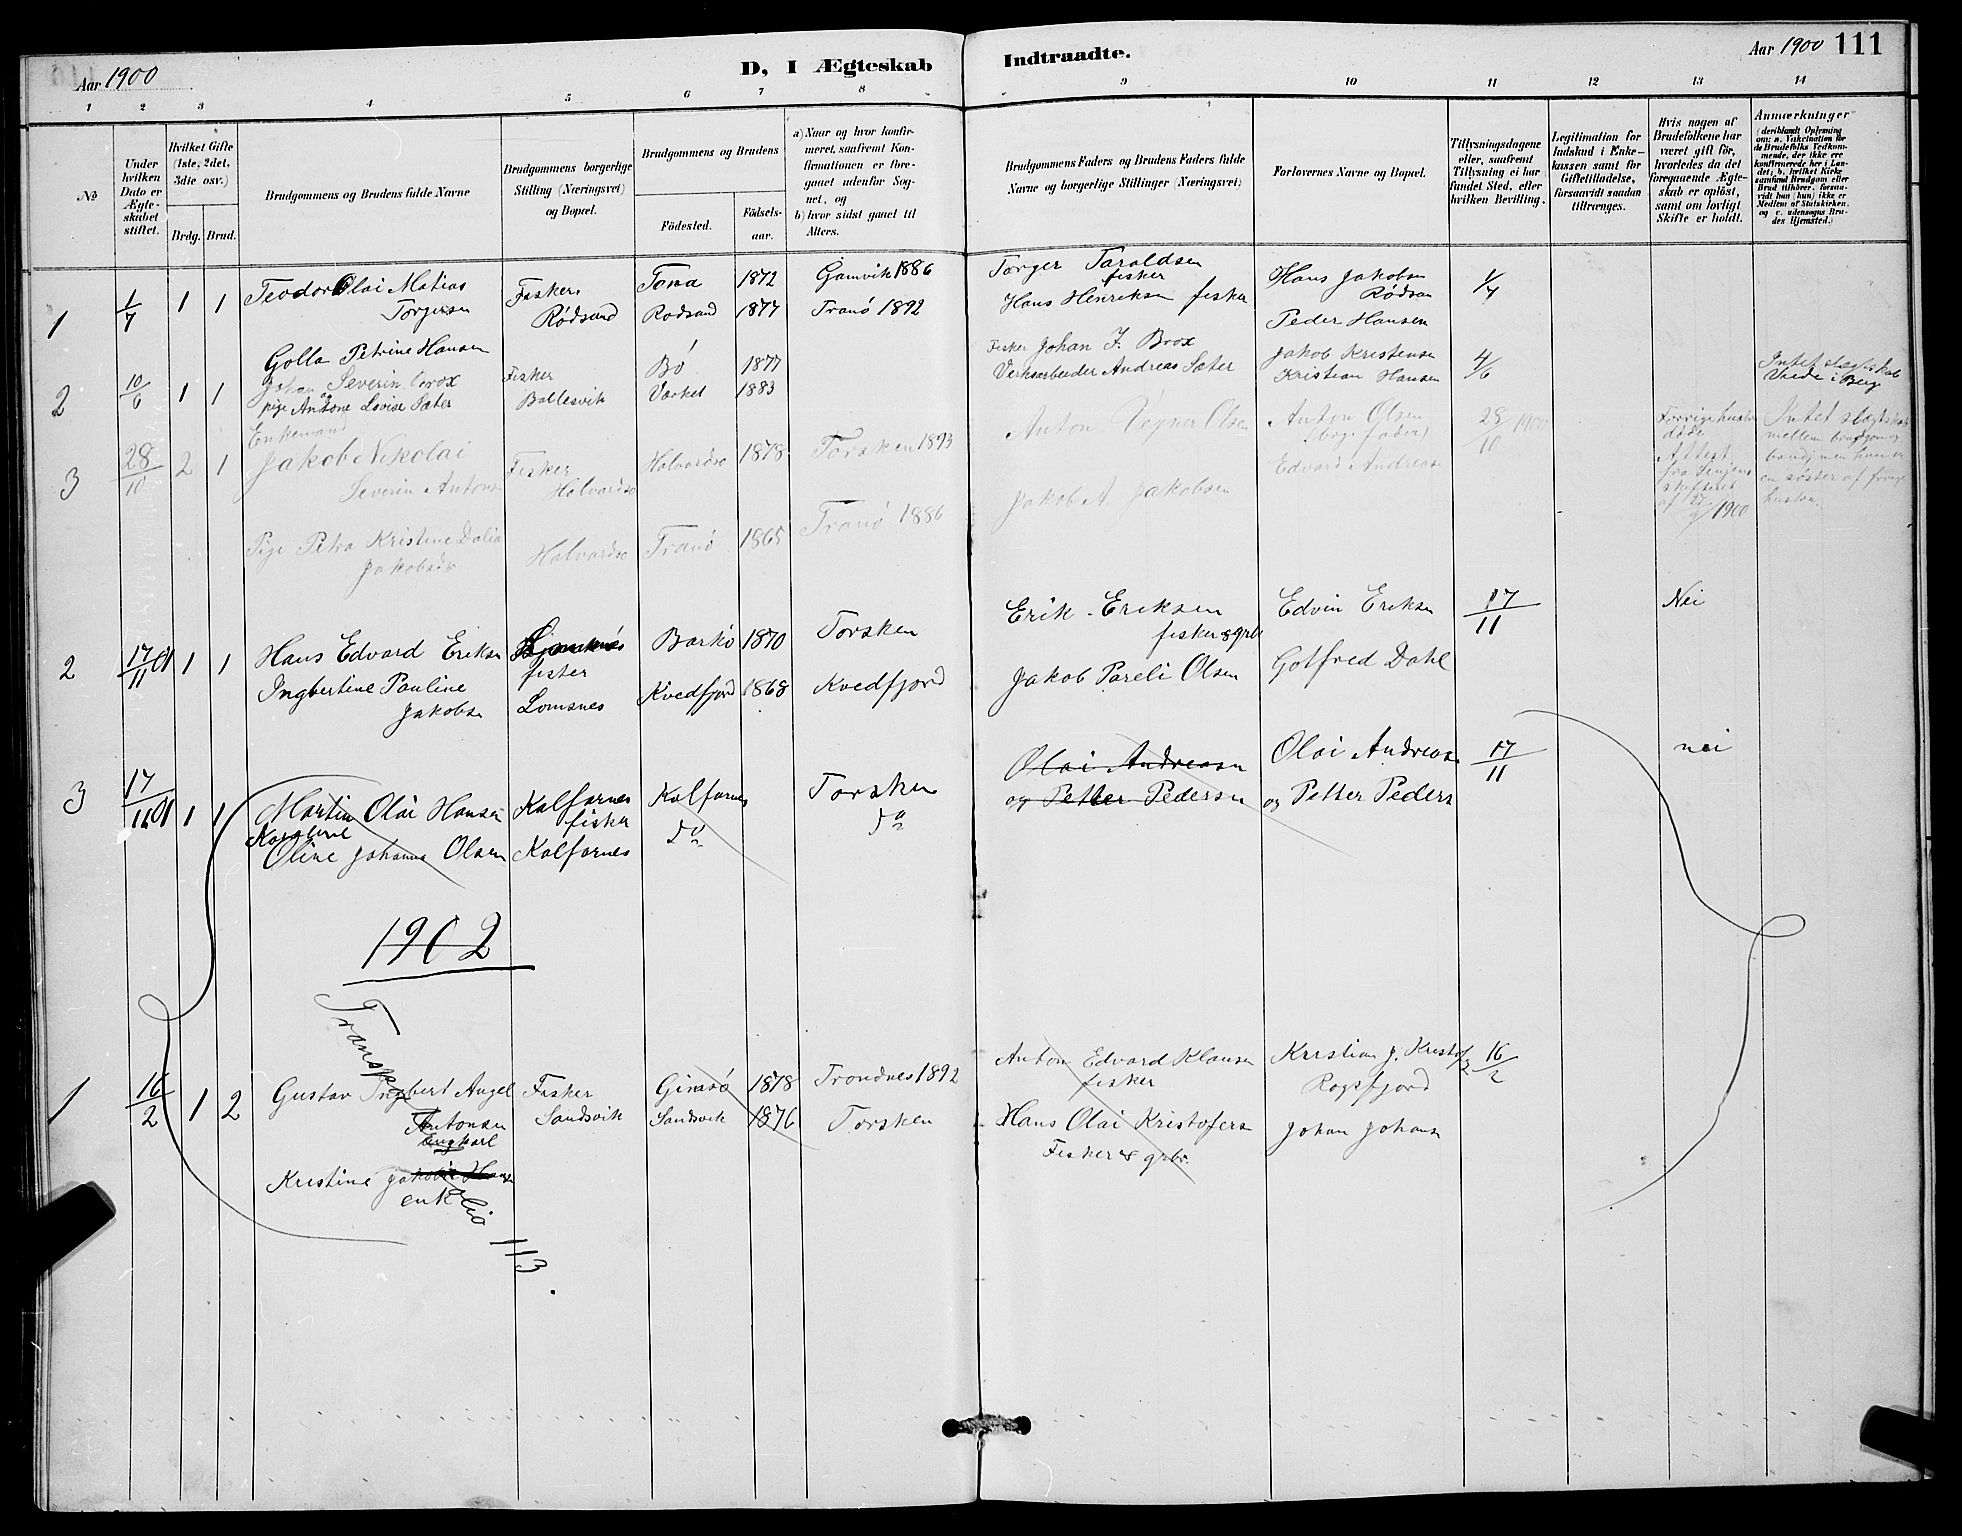 Aar 1900
D, I Ægteskab Indtraadte.
Aar 1900 111
1 2 3 4 5 6 7 8 9 10 11 12 13 14
No
Under hvilken Dato er Ægte-skabet stiftet.
Hvilket Gifte (1ste, 2det, 3die osv.)
Brdg. Brud.
Brudgommens og Brudens fulde Navne
Brudgommens borgerlige Stilling (Næringsvei) og Bopæl.
Brudgommens og Brudens
Födested.
Födsels-aar.
a) Naar og hvor konfir-meret, saafremt Kon-firmationen er fore-gaaet udenfor Sog-net, og
b) hvor sidst gaaet til Alters.
Brudgommens Faders og Brudens Faders fulde Navne og borgerlige Stillinger (Næringsvei)
Forlovernes Navne og Bopæl.
Tillysningsdagene eller, saafremt Tillysning ei har fundet Sted, efter hvilken Bevilling.
Legitimation for Indskud i Enke-kassen samt for Giftetilladelse, forsaavidt saadan tiltrænges.
Hvis nogen af Brudefolkene har været gift før, hvorledes da det foregaaende Ægte-skab er oplöst, samt om lovligt Skifte er holdt.
Anmærkninger
(deriblandt Oplysning om: a. Vakcination for de Brudefolks Vedkom-mende, der ikke ere konfirmerede her i Lan-det; b. hvilket Kirke-samfund Brudgom eller Brud tilhörer, forsaa-vidt han (hun) ikke er Medlem af Statskirken, og c. udensogns Bru-des Hjemsted.)
1 1/7 1 1 Teodor Olai Matias Fisker Tona 1872 Gamvik 1886 Torger Taraldsen fisker Hans Jakobsen 1/7
Torgersen Rødsand Rødsand 1877 Tranö 1892 Hans Henriksen fisker Rødsan
Golla Petrine Hansen Peder Hansen
2 10/6 1 1 Johan Severin Brox Fisker Bö 1877 Fisker Johan J. Brox Jakob Kristensen 4/6 Intet slegtskab
pige Antone Lovise Sæter Ballesvik Varket 1883 Verksarbeider Andreas Sæter Kristian Hansen Viede i Berg
3 28/10 2 1 Enkemand
Jakob Nikolai Fisker Halvardsö 1878 Torsken 1893 Anton Vegner Olsen Anton Olsen 28/10 1900 Forrige hustru Intet slegtskab
Severin Antons Halvardsö (brg. fader) døde mellem brudgom og
Edvard Andreas Attest brud, men hun er
Jakob A. Jakobsen fra Senjens en søster af forrige
skifteret hustru.
af 27/9 1900
Pige Petra Kristine Dalia Halvardsö Tranö 1865 Tranö 1886
Jakobsdr
2 17/11 01 1 1 Hans Edvard Eriksen fisker Barkö 1870 Torsken Erik Eriksen Edvin Eriksen 17/11 Nei
fisker & grbr
Ingbertine Pauline Lomsnes Kvedfjord 1868 Kvedfjord Jakob Pareli Olsen Gotfred Dahl
Jakobsen
3 17/11 01 1 1 Martin Olai Hansen Kalfarnes Kalfarnes Torsken Olai Andreasen Olai Andreasen 17/11 nei
fisker do do og Petter Pedersen og Petter Peders
Karoline
Oline Johanna Olsen Kalfarnes
1902
Transp.
1 16/2 1 2 Gustav Ingbert Angel Fisker Gimsö 1878 Trondnes 1892 Anton Edvard Klausen Kristian J. Kristofs 16/2
Antonsen Sandsvik Sandsvik 1876 Torsken fisker Rogsfjord
ungkarl Hans Olai Kristofersn Johan Johans
Fisker & grbr.
Kristine
enke
113.